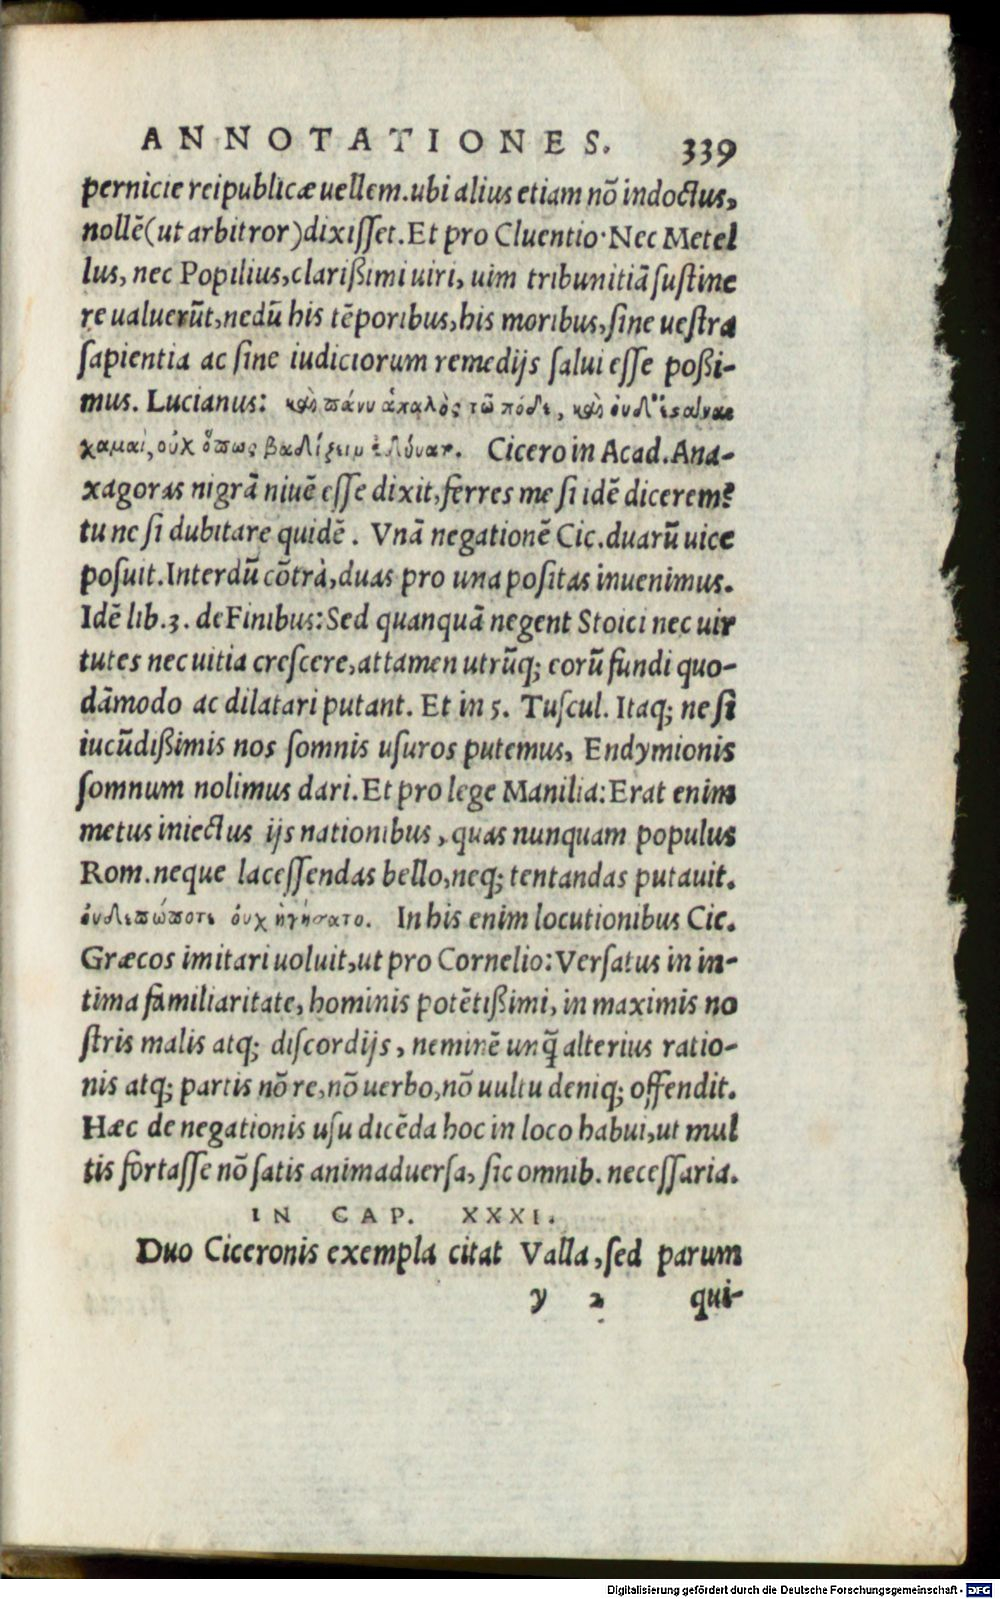 ANNOTATIONES. 339
pernicie reipublicæ uellem. ubi alius etiam nõ indoctus,
nollẽ (ut arbitror) dixiſſet. Et pro Cluentio· Nec Metel
lus, nec Popilius, clarißimi uiri, uim tribunitiã ſuſtine
re ualuerũt, nedũ his tẽporibus, his moribus, ſine ueſtra
ſapientia ac ſine iudiciorum remedijs ſalui eſſe poßi-
mus. Lucianus: καὶ πάνυ ἁπαλὸς τῶ πόδε, καὶ
χαμαὶ, οὐχ ὅπως βαδίζειν ἐδύνατ. Cicero in Acad. Ana-
xagoras nigrã niuẽ eſſe dixit, ferres me ſi idẽ dicerem?
tu ne ſi dubitare quidẽ. Vnã negationẽ Cic. duarũ uice
poſuit. Interdũ cõtrà, duas pro una poſitas inuenimus.
Idẽ lib. 3. de Finibus: Sed quanquã negent Stoici nec uir
tutes nec uitia creſcere, attamen utrũq; eorũ fundi quo-
dãmodo ac dilatari putant. Et in 5. Tuſcul. Itaq; ne ſi
iucũdißimis nos ſomnis uſuros putemus, Endymionis
ſomnum nolimus dari. Et pro lege Manilia: Erat enim
metus iniectus ijs nationibus, quas nunquam populus
Rom. neque laceſſendas bello, neq; tentandas putauit.
οὐδεπώποτε οὐχ ἡγήσατο. In his enim locutionibus Cic.
Græcos imitari uoluit, ut pro Cornelio: Verſatus in in-
tima familiaritate, hominis potẽtißimi, in maximis no
ſtris malis atq; diſcordijs, neminẽ unq̃ alterius ratio-
nis atq; partis nõ re, nõ uerbo, nõ uultu deniq; offendit.
Hæc de negationis uſu dicẽda hoc in loco habui, ut mul
tis fortaſſe nõ ſatis animaduerſa, ſic omnib. neceſſaria.
IN CAP. XXXI.
Duo Ciceronis exempla citat Valla, ſed parum
y 2 qui-
Digitalisierung gefördert durch die Deutsche Forschungsgemeinschaft - DFG